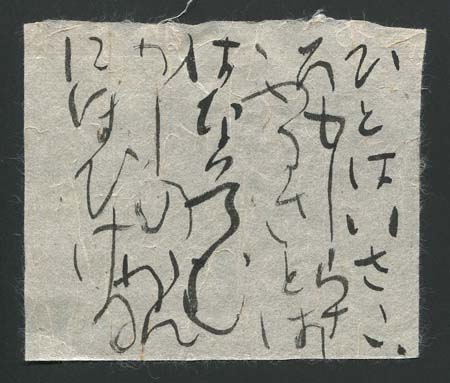 ひとはいさこゝ
ろもしらす
ふるさとは
はなそむ
かしのかに
にほひける